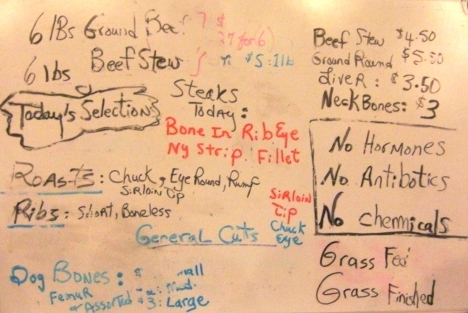 6 lBs Ground Beef
27 for 6)
6 lbs Beef Stew $5:1lb
Today's Selection
Steaks
Today:
Bone In RibEye
Ny Strip. Fillet
Roasts: Chuck, Eye Round, Rump
Sirloin Tip
Ribs: Short, Boneless
Sirloin
Tip
Chuck
Eye
General Cuts
Dog Bones:
Femur
Assorted
3: Large
Beef Stew $4.50
Ground Round
Liver: $3.50
Neck Bones: $3
No Hormones
No Antibiotics
No Chemmicals
Grass Fed
Grass Finished